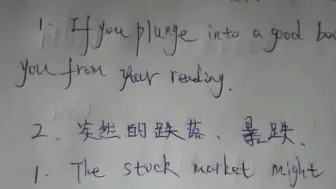 1. If you plunge into a good bo
you from your reading.
2. 突然的跌落、暴跌.
1. The stock market might